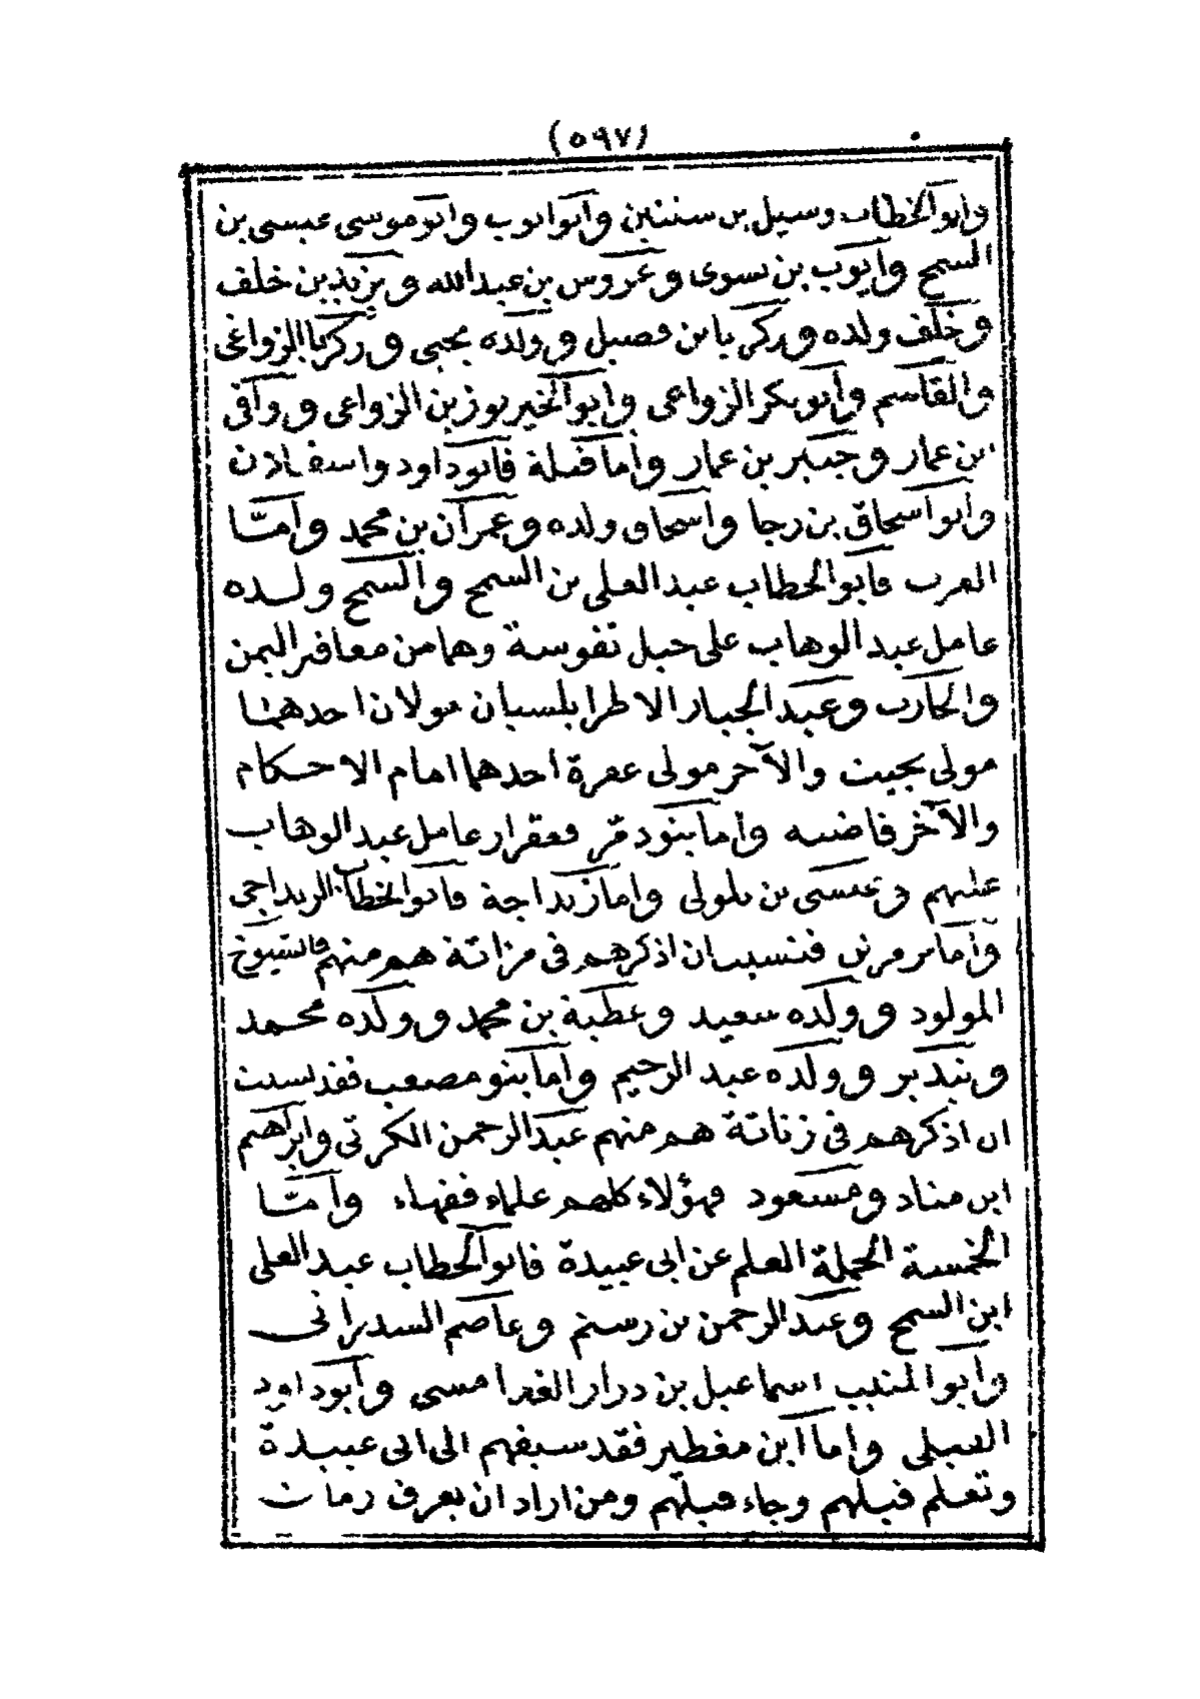 (٥٩٧)
وابو الخطاب وسيل بن سنتين وابو ايوب وابو موسى عيسى بن
السمح وايوب بن بسوى وعروس بن عبد الله ويزيد بن خلف
وخلف ولده وزكريا بن فصيل وولده يحيى وزكريا الزواغى
والقاسم وأبو بكر الزواغى وابو الخير بوزين الزواغى ووافى
ابن عمار وجبير بن عمار وأما فضلة فابو داود واسفاذن
وأبو اسحاق بن رجا واسحاق ولده وعمران بن محمد وأمّا
العرب فأبو الخطاب عبد العلى بن السمح والسمح ولده
عامل عبد الوهاب على جبل نفوسة وهما من معافر اليمن
والحارث وعبد الجبار الاطرابلسيان مولان احدهما
مولى بجيت والآخر مولى عمرة احدهما امام الاحكام
والآخر قاضيه وأما بنو دمّر فعقرار عامل عبد الوهاب
عليهم وعيسى بن بلولى واما زيداجة فابو الخطاب الزيداجى
وأما فنسيت ان اذكرهم فى مزاتة هم منهم فالشيوخ
المولود وولده سعيد وعطية بن محمد وولده محمد
وبيدير وولده عبد الرحيم واما بنو مصعب فقد نسيت
ان اذكرهم فى زناتة هم منهم عبد الرحمن الكرتى وابراهيم
ابن مناد ومسعود فهؤلاء كلهم علماء فقهاء وأمّا
الخمسة الحملة العلم عن ابى عبيدة فابو الخطاب عبد العلى
ابن السمح وعبد الرحمن بن رستم وعاصم السدراتى
وأبو المنيب اسماعيل بن درار الغدامسى وأبو داود
القبلى واما ابن مغطير فقد سبقهم الى ابى عبيدة
وتعلم قبلهم وجاء قبلهم ومن اراد ان يعرف زمان